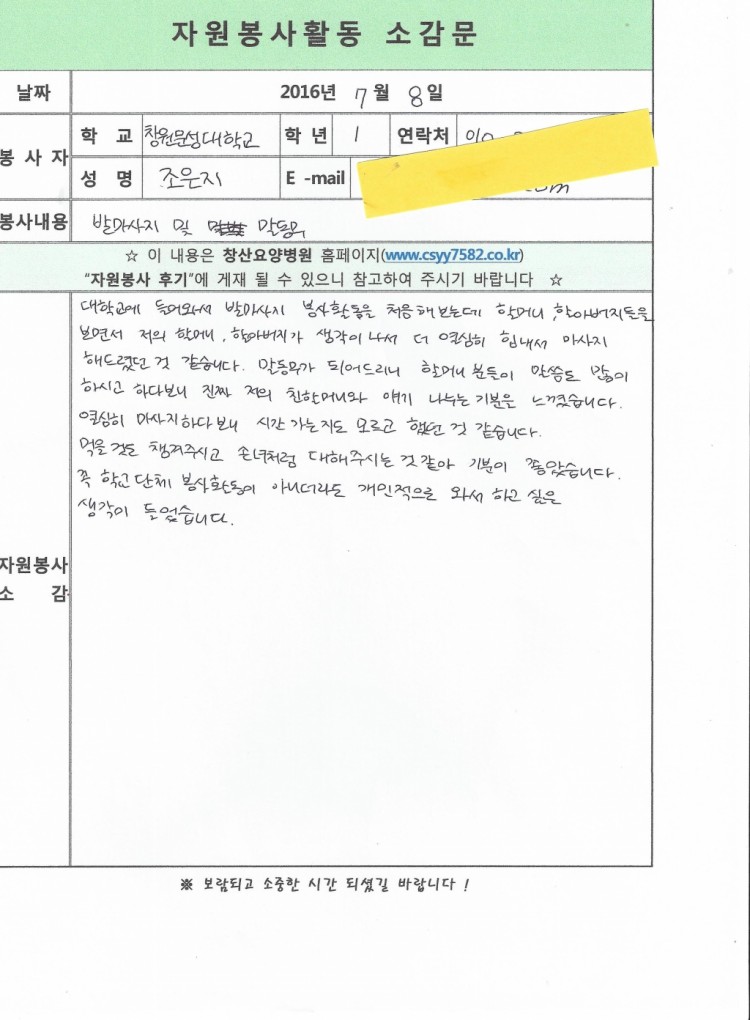 자원봉사활동 소감문
날짜 2016년 7월 8일
봉사자 학 교 창원문성대학교 학 년 1 연락처 010
성 명 조은지 E-mail com
봉사내용 발마사지 및 말동무
☆ 이 내용은 창산요양병원 홈페이지(www.csyy7582.co.kr)
"자원봉사 후기"에 게재 될 수 있으니 참고하여 주시기 바랍니다 ☆
자원봉사
소 감
대학교에 들어와서 발마사지 봉사활동을 처음해보는데 할머니, 할아버지들을
보면서 저의 할머니, 할아버지가 생각이 나서 더 열심히 힘내서 마사지
해드렸던 것 같습니다. 말동무가 되어드리니 할머니 분들이 말씀도 많이
하시고 하다보니 진짜 저의 친할머니와 얘기 나누는 기분은 느꼈습니다.
열심히 마사지하다 보니 시간 가는지도 모르고 했던 것 같습니다.
먹을것도 챙겨주시고 손녀처럼 대해주시는 것 같아 기분이 좋았습니다.
꼭 학교 단체 봉사활동이 아니더라도 개인적으로 와서 하고 싶은
생각이 들었습니다.
※ 보람되고 소중한 시간 되셨길 바랍니다 !